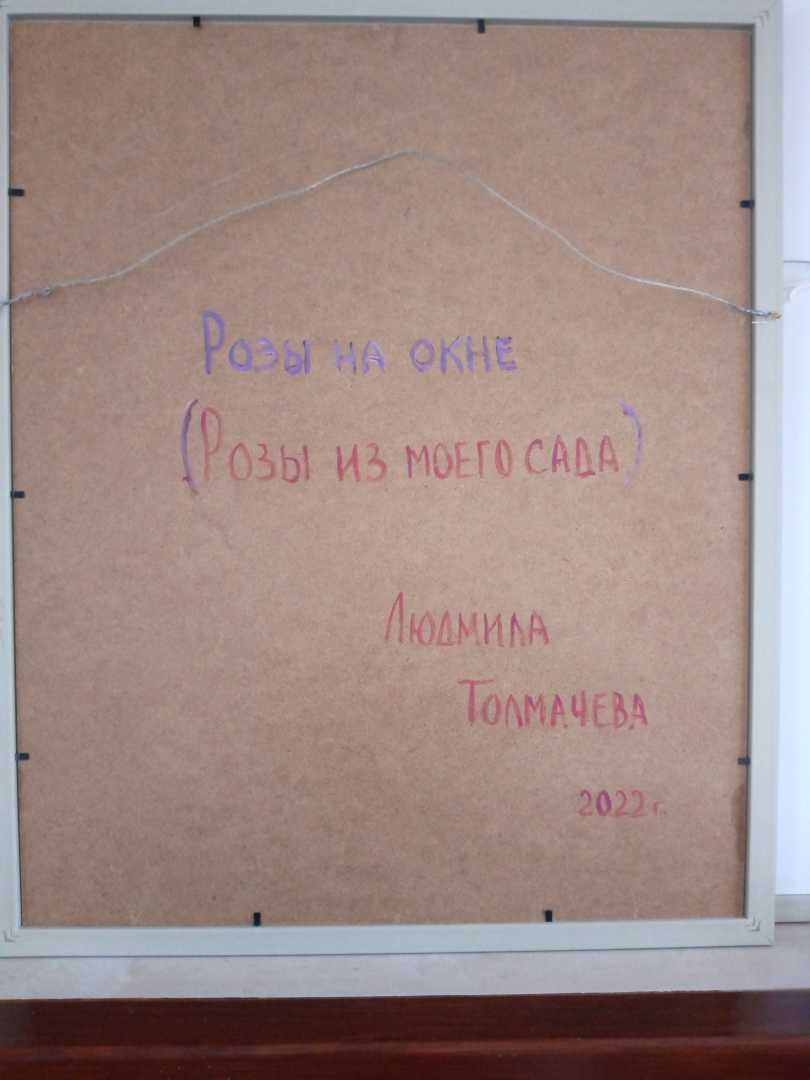 Розы на окне
(Розы из моего сада)
Людмила
Толмачева
2022 г.